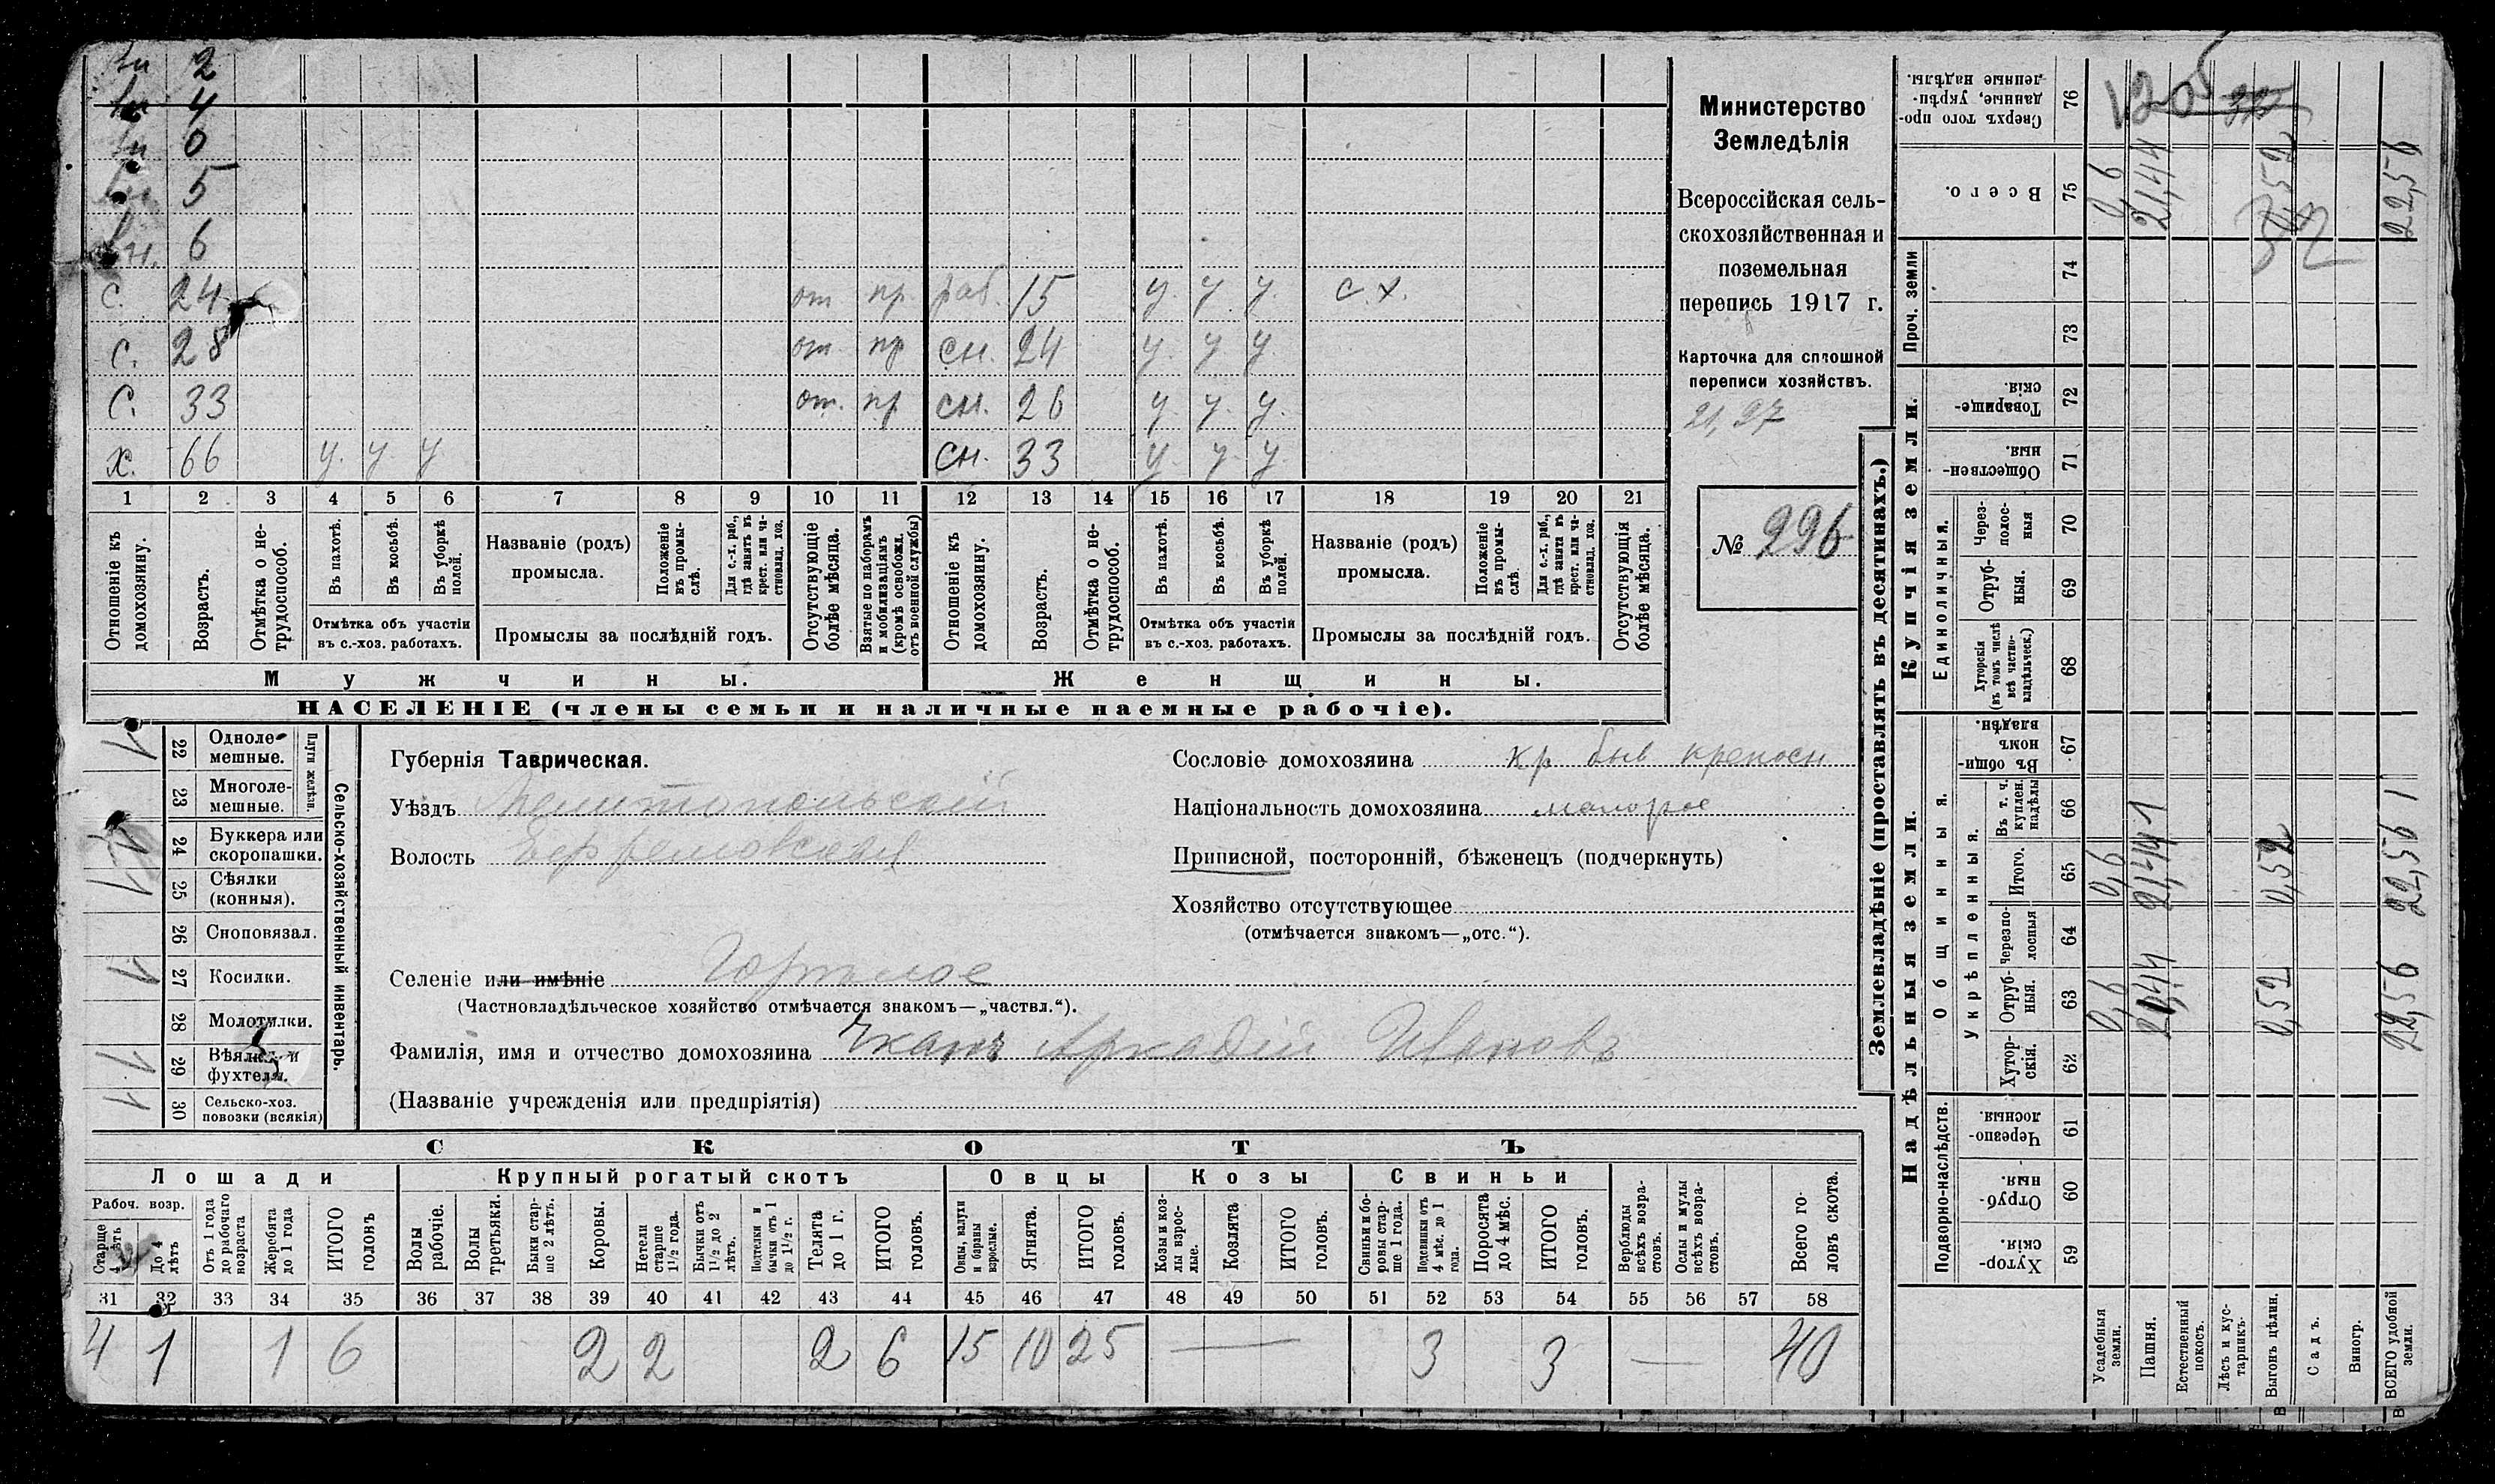 2
4
0
5
6
с. 24 от пр. раб. 15 у. у у. с. х.
с. 28 от пр сн. 24 у. у у.
с. 33 от. пр сн. 26 у. у. у.
х. 66 у. у. у сн. 33 у. у. у.
1 2 3 4 5 6 7 8 9 10 11 12 13 14 15 16 17 18 19 20 21
Отношеніе къ домохозяину.
Возрастъ.
Отмѣтка о не-
трудоспособ.
Въ пахотѣ.
Въ косьбѣ.
Въ уборкѣ
полей.
Отмѣтка объ участіи
въ с.-хоз. работахъ.
Названіе (родъ)
промысла.
Положеніе
въ промы-
слѣ.
Для с.-х. раб.,
гдѣ занятъ въ
крест. или ча-
стновлад. хоз.
Промыслы за послѣдній годъ.
Отсутствующіе
болѣе мѣсяца.
Взятые по наборамъ
и мобилизаціямъ
(кромѣ освобожд.
отъ военной службы)
Отношеніе къ
домохозяину.
Возрастъ.
Отмѣтка о не-
трудоспособ.
Въ пахотѣ.
Въ косьбѣ.
Въ уборкѣ
полей.
Отмѣтка объ участіи
въ с.-хоз. работахъ.
Названіе (родъ)
промысла.
Положеніе
въ промы-
слѣ.
Для с.-х. раб.,
гдѣ занята въ
крест. или ча-
стновлад. хоз.
Промыслы за послѣдній годъ.
Отсутствующія
болѣе мѣсяца.
Мужчины.
Женщины.
НАСЕЛЕНІЕ (члены семьи и наличные наемные рабочіе).
Министерство
Земледѣлія
Всероссійская сель-
скохозяйственная и
поземельная
перепись 1917 г.
Карточка для сплошной
переписи хозяйствъ.
21,97
№ 296
22 Одноле-
мешные.
23 Многоле-
мешные.
Плуги желѣзн.
24 Буккера или
скоропашки.
25 Сѣялки
(конныя).
26 Сноповязал.
27 Косилки.
28 Молотилки.
29 Вѣялки и
фухтеля.
30 Сельско-хоз.
повозки (всякія)
Сельско-хозяйственный инвентарь.
Губернія Таврическая.
Уѣздъ Мелитопольскій
Волость Ефремовская
Селеніе или имѣніе Горѣлое
(Частновладѣльческое хозяйство отмѣчается знакомъ—„частвл.“).
Фамилія, имя и отчество домохозяина Чканъ Аркадій Ивановъ
(Названіе учрежденія или предпріятія)
Сословіе домохозяина кр быв крепосн
Національность домохозяина малорос
Приписной, посторонній, бѣженецъ (подчеркнуть)
Хозяйство отсутствующее
(отмѣчается знакомъ—„отс.“).
СКОТЪ
Лошади Крупный рогатый скотъ Овцы Козы Свиньи
Рабоч. возр.
Старше
4 лѣтъ
До 4
лѣтъ
Отъ 1 года
до рабочаго
возраста
Жеребята
до 1 года
ИТОГО
головъ
Волы
рабочіе.
Волы
третьяки.
Быки стар-
ше 2 лѣтъ.
Коровы.
Нетели
старше
1½ года.
Бычки отъ
1½ до 2
лѣтъ.
Подтелки и
бычки отъ 1
до 1½ г.
Телята
до 1 г.
ИТОГО
головъ.
Овцы, валухи
и бараны
взрослые.
Ягнята.
ИТОГО
головъ.
Козы и коз-
лы взрос-
лые.
Козлята
ИТОГО
головъ.
Свиньи и бо-
ровы стар-
ше 1 года.
Подсвинки отъ
4 мѣс. до 1
года.
Поросята
до 4 мѣс.
ИТОГО
головъ.
Верблюды
всѣхъ возра-
стовъ.
Ослы и мулы
всѣхъ возра-
стовъ.
Всего го-
ловъ скота.
31 32 33 34 35 36 37 38 39 40 41 42 43 44 45 46 47 48 49 50 51 52 53 54 55 56 57 58
4 1 1 6 2 2 2 6 15 10 25 — 3 3 — 40
Землевладѣніе (проставлять въ десятинахъ.)
Надѣльныя земли.
Купчія земли.
Проч. земли
Подворно-наслѣдств.
Общинныя.
Укрѣпленныя.
Единоличныя.
Сверхъ того про-
данные, укрѣп-
ленные надѣлы. 76 1205
Всего. 75 0,6 21,44 0,52 22,56
74
73
Товарище-
скія. 72
Обществен-
ныя. 71
Через-
полос-
ныя 70
Отруб-
ныя. 69
Хуторскія
(въ томъ числѣ
всѣ частно-
владѣльческ.) 68
Въ общин-
номъ
владѣн. 67
Въ т. ч.
куплен.
надѣлы 66 1 1
Итого. 65 0,6 21,44 0,52 22,56
Черезпо-
лосныя 64
Отруб-
ныя. 63 0,6 21,44 0,52 22,56
Хутор-
скія. 62
Черезпо-
лосныя. 61
Отруб-
ныя. 60
Хутор-
скія. 59
Усадебныя
земли.
Пашня.
Естественный
покосъ.
Лѣсъ и кус-
тарникъ.
Выгонъ цѣлин.
Садъ.
Виногр.
ВСЕГО удобной
земли.